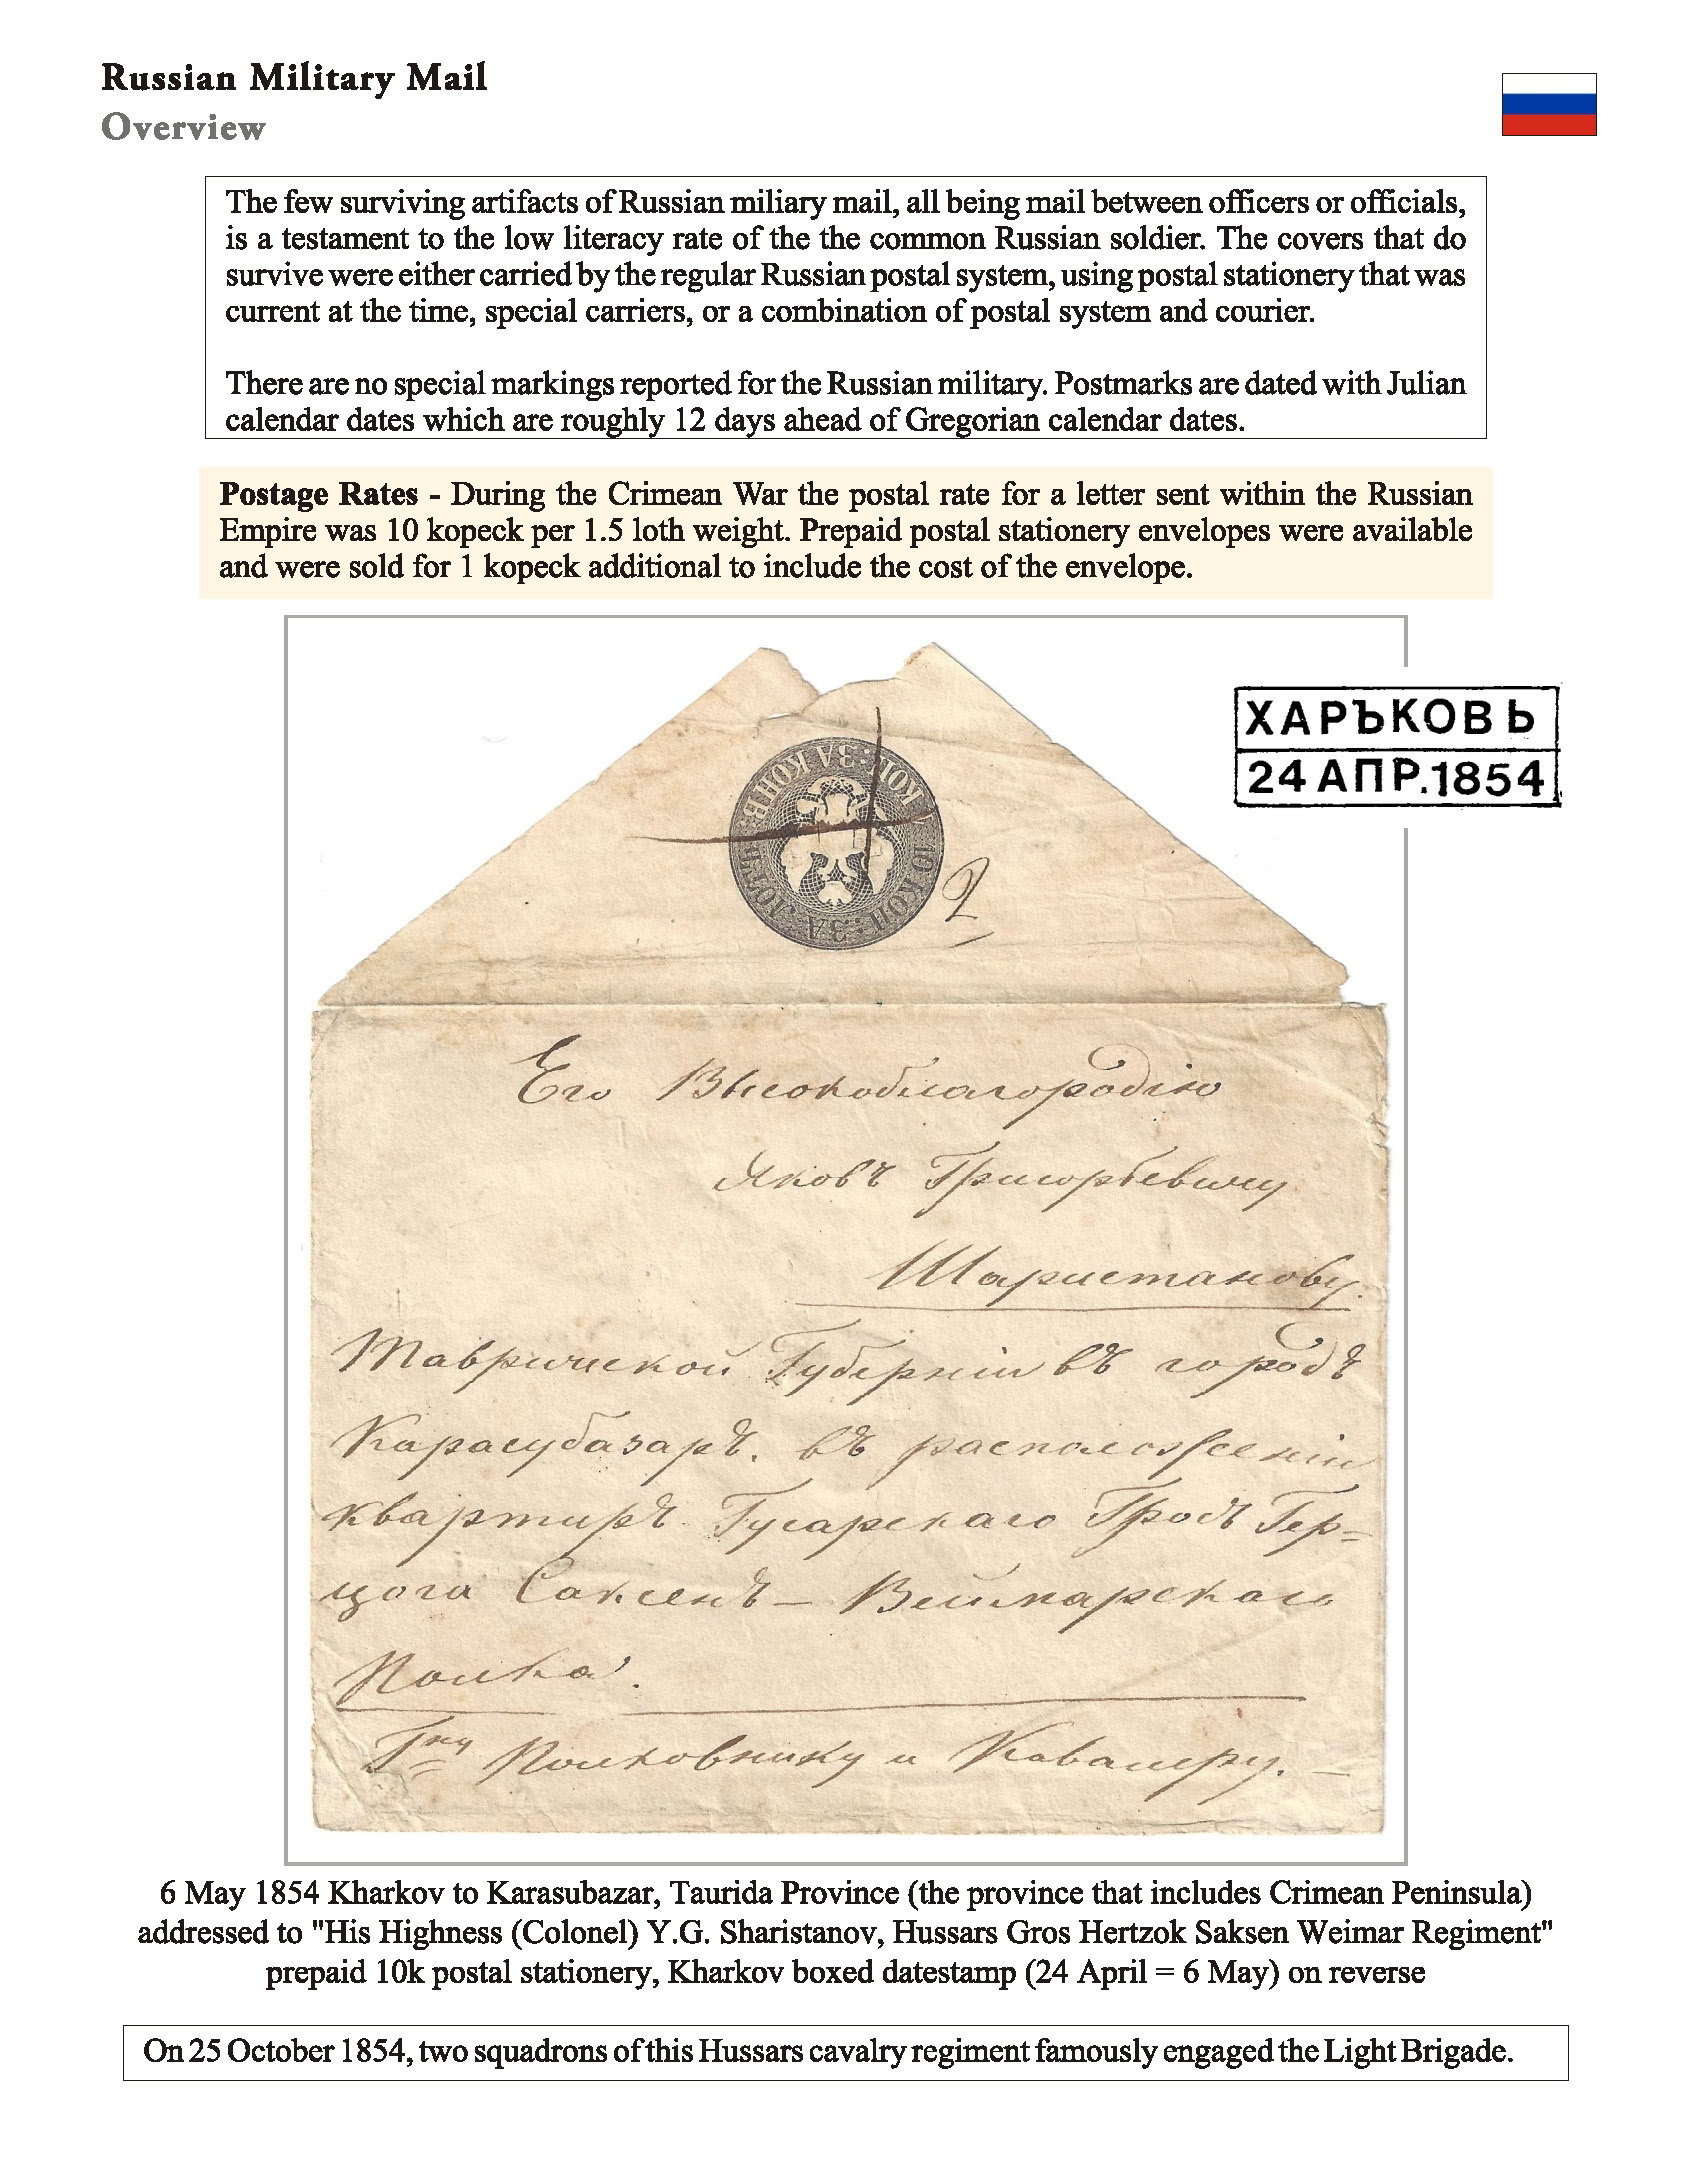 Russian Military Mail
Overview
The few surviving artifacts of Russian miliary mail, all being mail between officers or officials,
is a testament to the low literacy rate of the the common Russian soldier. The covers that do
survive were either carried by the regular Russian postal system, using postal stationery that was
current at the time, special carriers, or a combination of postal system and courier.
There are no special markings reported for the Russian military. Postmarks are dated with Julian
calendar dates which are roughly 12 days ahead of Gregorian calendar dates.
Postage Rates - During the Crimean War the postal rate for a letter sent within the Russian
Empire was 10 kopeck per 1.5 loth weight. Prepaid postal stationery envelopes were available
and were sold for 1 kopeck additional to include the cost of the envelope.
ХАРЬКОВЪ
24 АПР.1854
10 КОП: ЗА ЛОТЪ 1 КОП: ЗА КОНВ:
2
Его Высокоблагородію
Яковъ Григорьевичу
Шаристанову.
Таврической Губерніи въ городѣ
Карасубазарѣ. въ расположеніи
квартиръ Гусарскаго Гросъ Гер-
цога Саксенъ-Веймарскаго
Полка.
Гну Полковнику и Кавалеру. -
6 May 1854 Kharkov to Karasubazar, Taurida Province (the province that includes Crimean Peninsula)
addressed to "His Highness (Colonel) Y.G. Sharistanov, Hussars Gros Hertzok Saksen Weimar Regiment"
prepaid 10k postal stationery, Kharkov boxed datestamp (24 April = 6 May) on reverse
On 25 October 1854, two squadrons of this Hussars cavalry regiment famously engaged the Light Brigade.